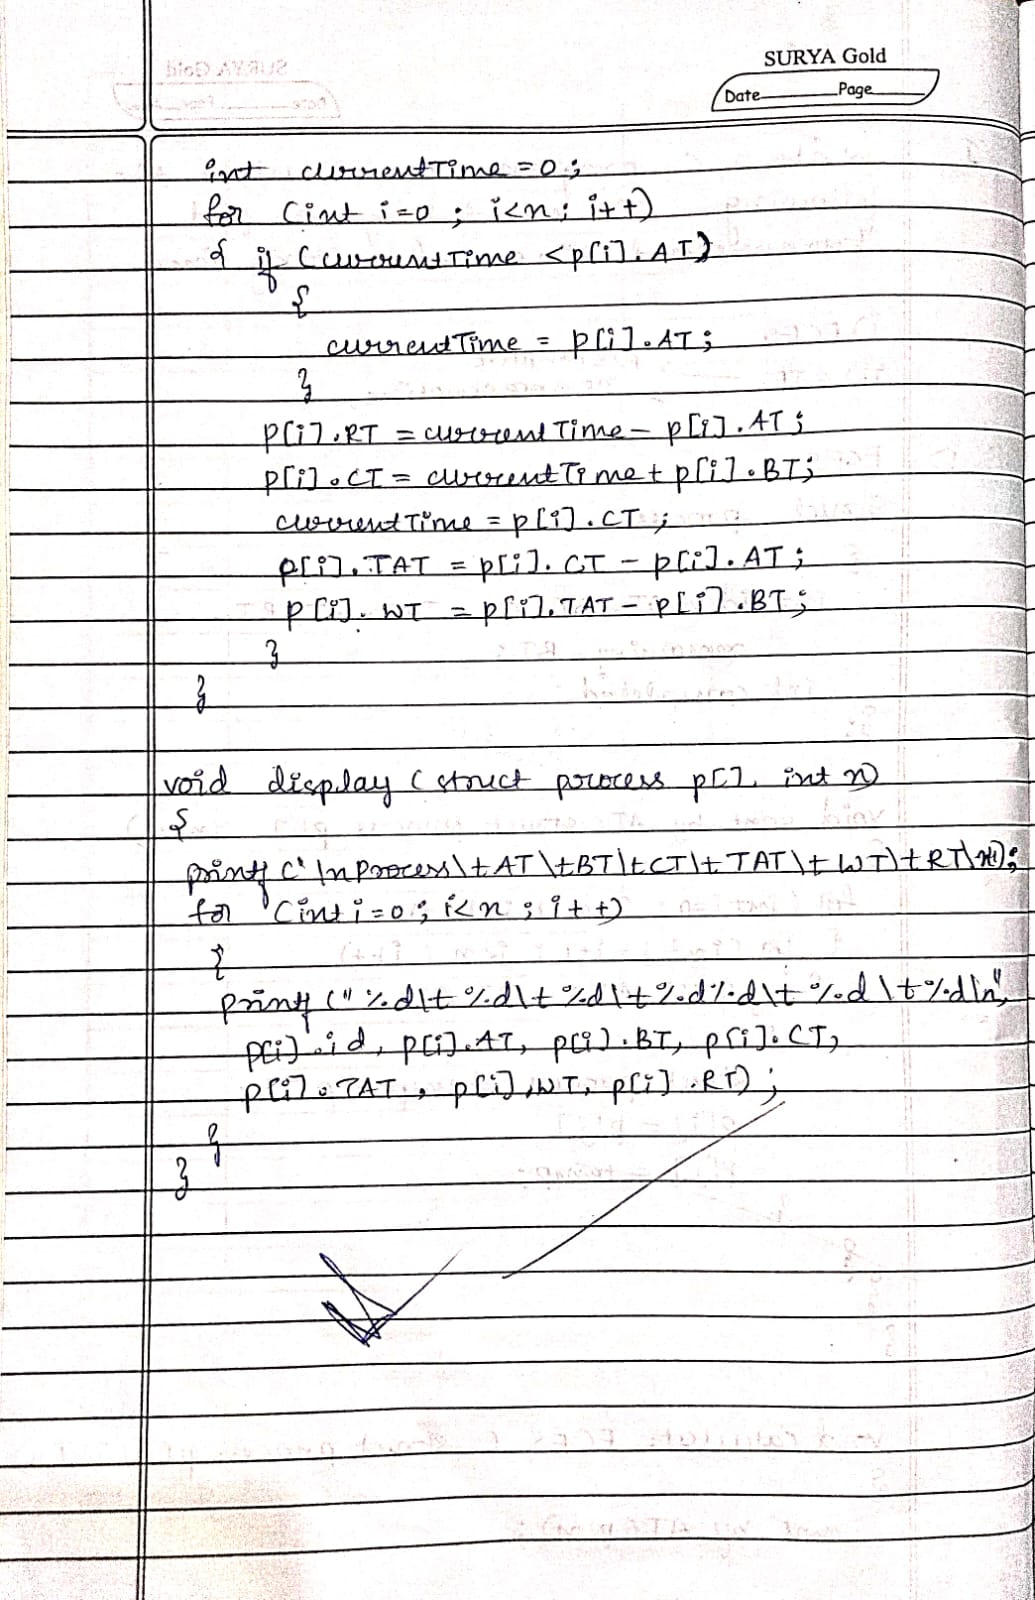 SURYA Gold
Date Page
int currentTime = 0;
for (int i=0 ; i<n; i++)
{ if (currentTime <p[i].AT)
{
currentTime = p[i].AT;
}
p[i].RT = currentTime - p[i].AT;
p[i].CT = currentTime + p[i].BT;
currentTime = p[i].CT;
p[i].TAT = p[i].CT - p[i].AT;
p[i].WT = p[i].TAT - p[i].BT;
}
}
void display (struct process p[], int n)
{
printf ("\nProcess\tAT\tBT\tCT\tTAT\tWT\tRT\n");
for (int i=0; i<n ; i++)
{
printf ("%d\t%d\t%d\t%d%d\t%d\t%d\n",
p[i].id, p[i].AT, p[i].BT, p[i].CT,
p[i].TAT, p[i].WT, p[i].RT);
}
}